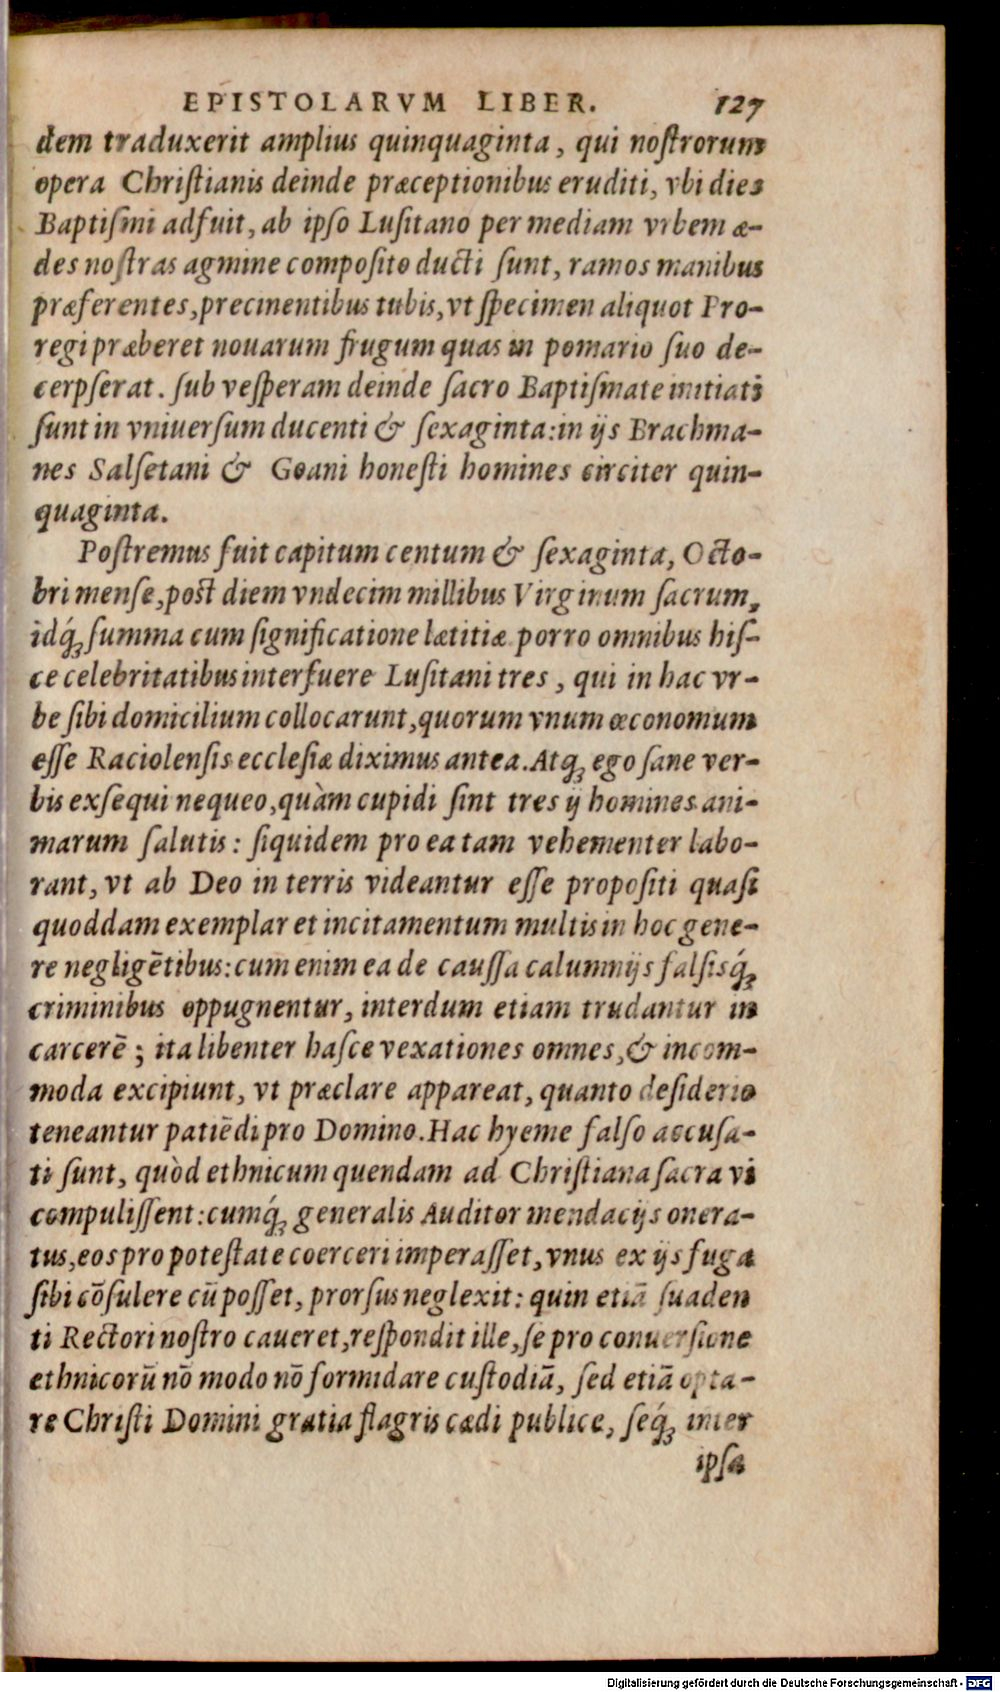 EPISTOLARVM LIBER. 127
dem traduxerit amplius quinquaginta, qui noſtrorum
opera Chriſtianis deinde præceptionibus eruditi, vbi dies
Baptiſmi adfuit, ab ipſo Luſitano per mediam vrbem æ-
des noſtras agmine compoſito ducti ſunt, ramos manibus
præferentes, precinentibus tubis, vt ſpecimen aliquot Pro-
regi præberet nouarum frugum quas in pomario ſuo de-
cerpſerat. ſub veſperam deinde ſacro Baptiſmate initiati
ſunt in vniuerſum ducenti & ſexaginta: in ijs Brachma-
nes Salſetani & Goani honeſti homines circiter quin-
quaginta.
Poſtremus fuit capitum centum & ſexaginta, Octo-
bri menſe, poſt diem vndecim millibus Virginum ſacrum,
idq́; ſumma cum ſignificatione lætitiæ porro omnibus hiſ-
ce celebritatibus interfuere Luſitani tres, qui in hac vr-
be ſibi domicilium collocarunt, quorum vnum œconomum
eſſe Raciolenſis eccleſiæ diximus antea. Atq; ego ſane ver-
bis exſequi nequeo, quàm cupidi ſint tres ij homines ani-
marum ſalutis: ſiquidem pro ea tam vehementer labo-
rant, vt ab Deo in terris videantur eſſe propoſiti quaſi
quoddam exemplar et incitamentum multis in hoc gene-
re negligẽtibus: cum enim ea de cauſſa calumnijs falſisq́;
criminibus oppugnentur, interdum etiam trudantur in
carcerẽ; ita libenter haſce vexationes omnes, & incom-
moda excipiunt, vt præclare appareat, quanto deſiderio
teneantur patiẽdi pro Domino. Hac hyeme falſo accuſa-
ti ſunt, quòd ethnicum quendam ad Chriſtiana ſacra vi
compuliſſent: cumq́; generalis Auditor mendacijs onera-
tus, eos pro poteſtate coerceri imperaſſet, vnus ex ijs fuga
ſibi cõſulere cũ poſſet, prorſus neglexit: quin etiã ſuaden
ti Rectori noſtro caueret, reſpondit ille, ſe pro conuerſione
ethnicorũ nõ modo nõ formidare cuſtodiã, ſed etiã opta-
re Chriſti Domini gratia flagris cædi publice, ſeq́; inter
ipſa
Digitalisierung gefördert durch die Deutsche Forschungsgemeinschaft - DFG